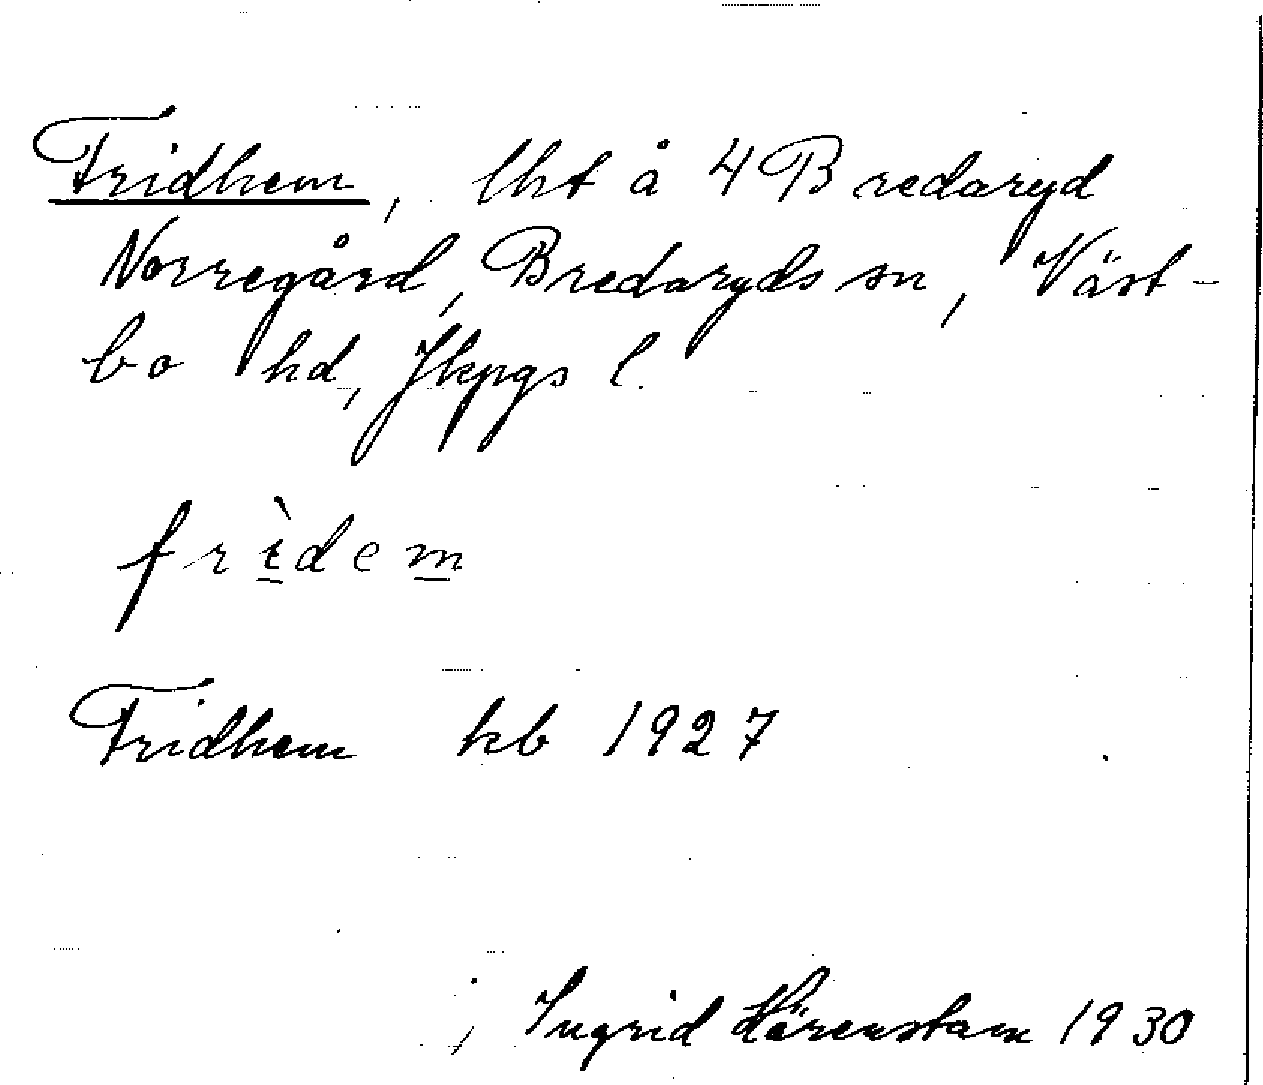 Fridhem, lht å 4 Bredaryd
Norregård, Bredaryds sn, Väst-
bo hd, Jkpgs l.
frìdem
Fridhem kb 1927
Ingrid Härenstam 1930